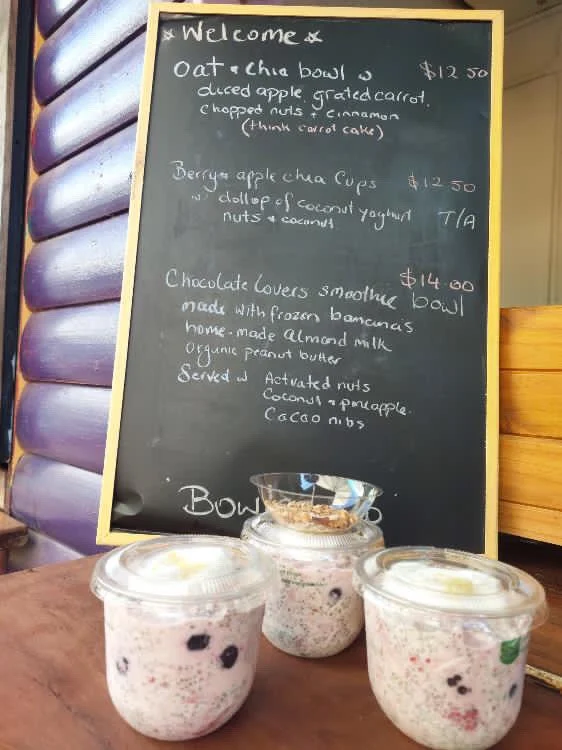 Welcome
Oat & chia bowl w $12.50
diced apple, grated carrot,
chopped nuts + cinnamon
(think carrot cake)
Berry & apple chia Cups $12.50
w dollop of coconut yoghurt T/A
nuts & coconut
$14.00
Chocolate Lovers smoothie bowl
made with frozen bananas
home-made almond milk
Organic peanut butter
Served w Activated nuts
Coconut & pineapple.
Cacao nibs